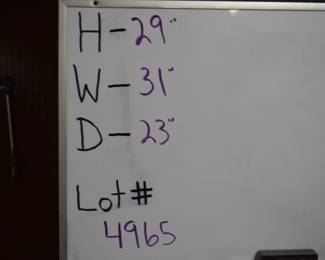 H-29"
W-31"
D-23"
Lot#
4965